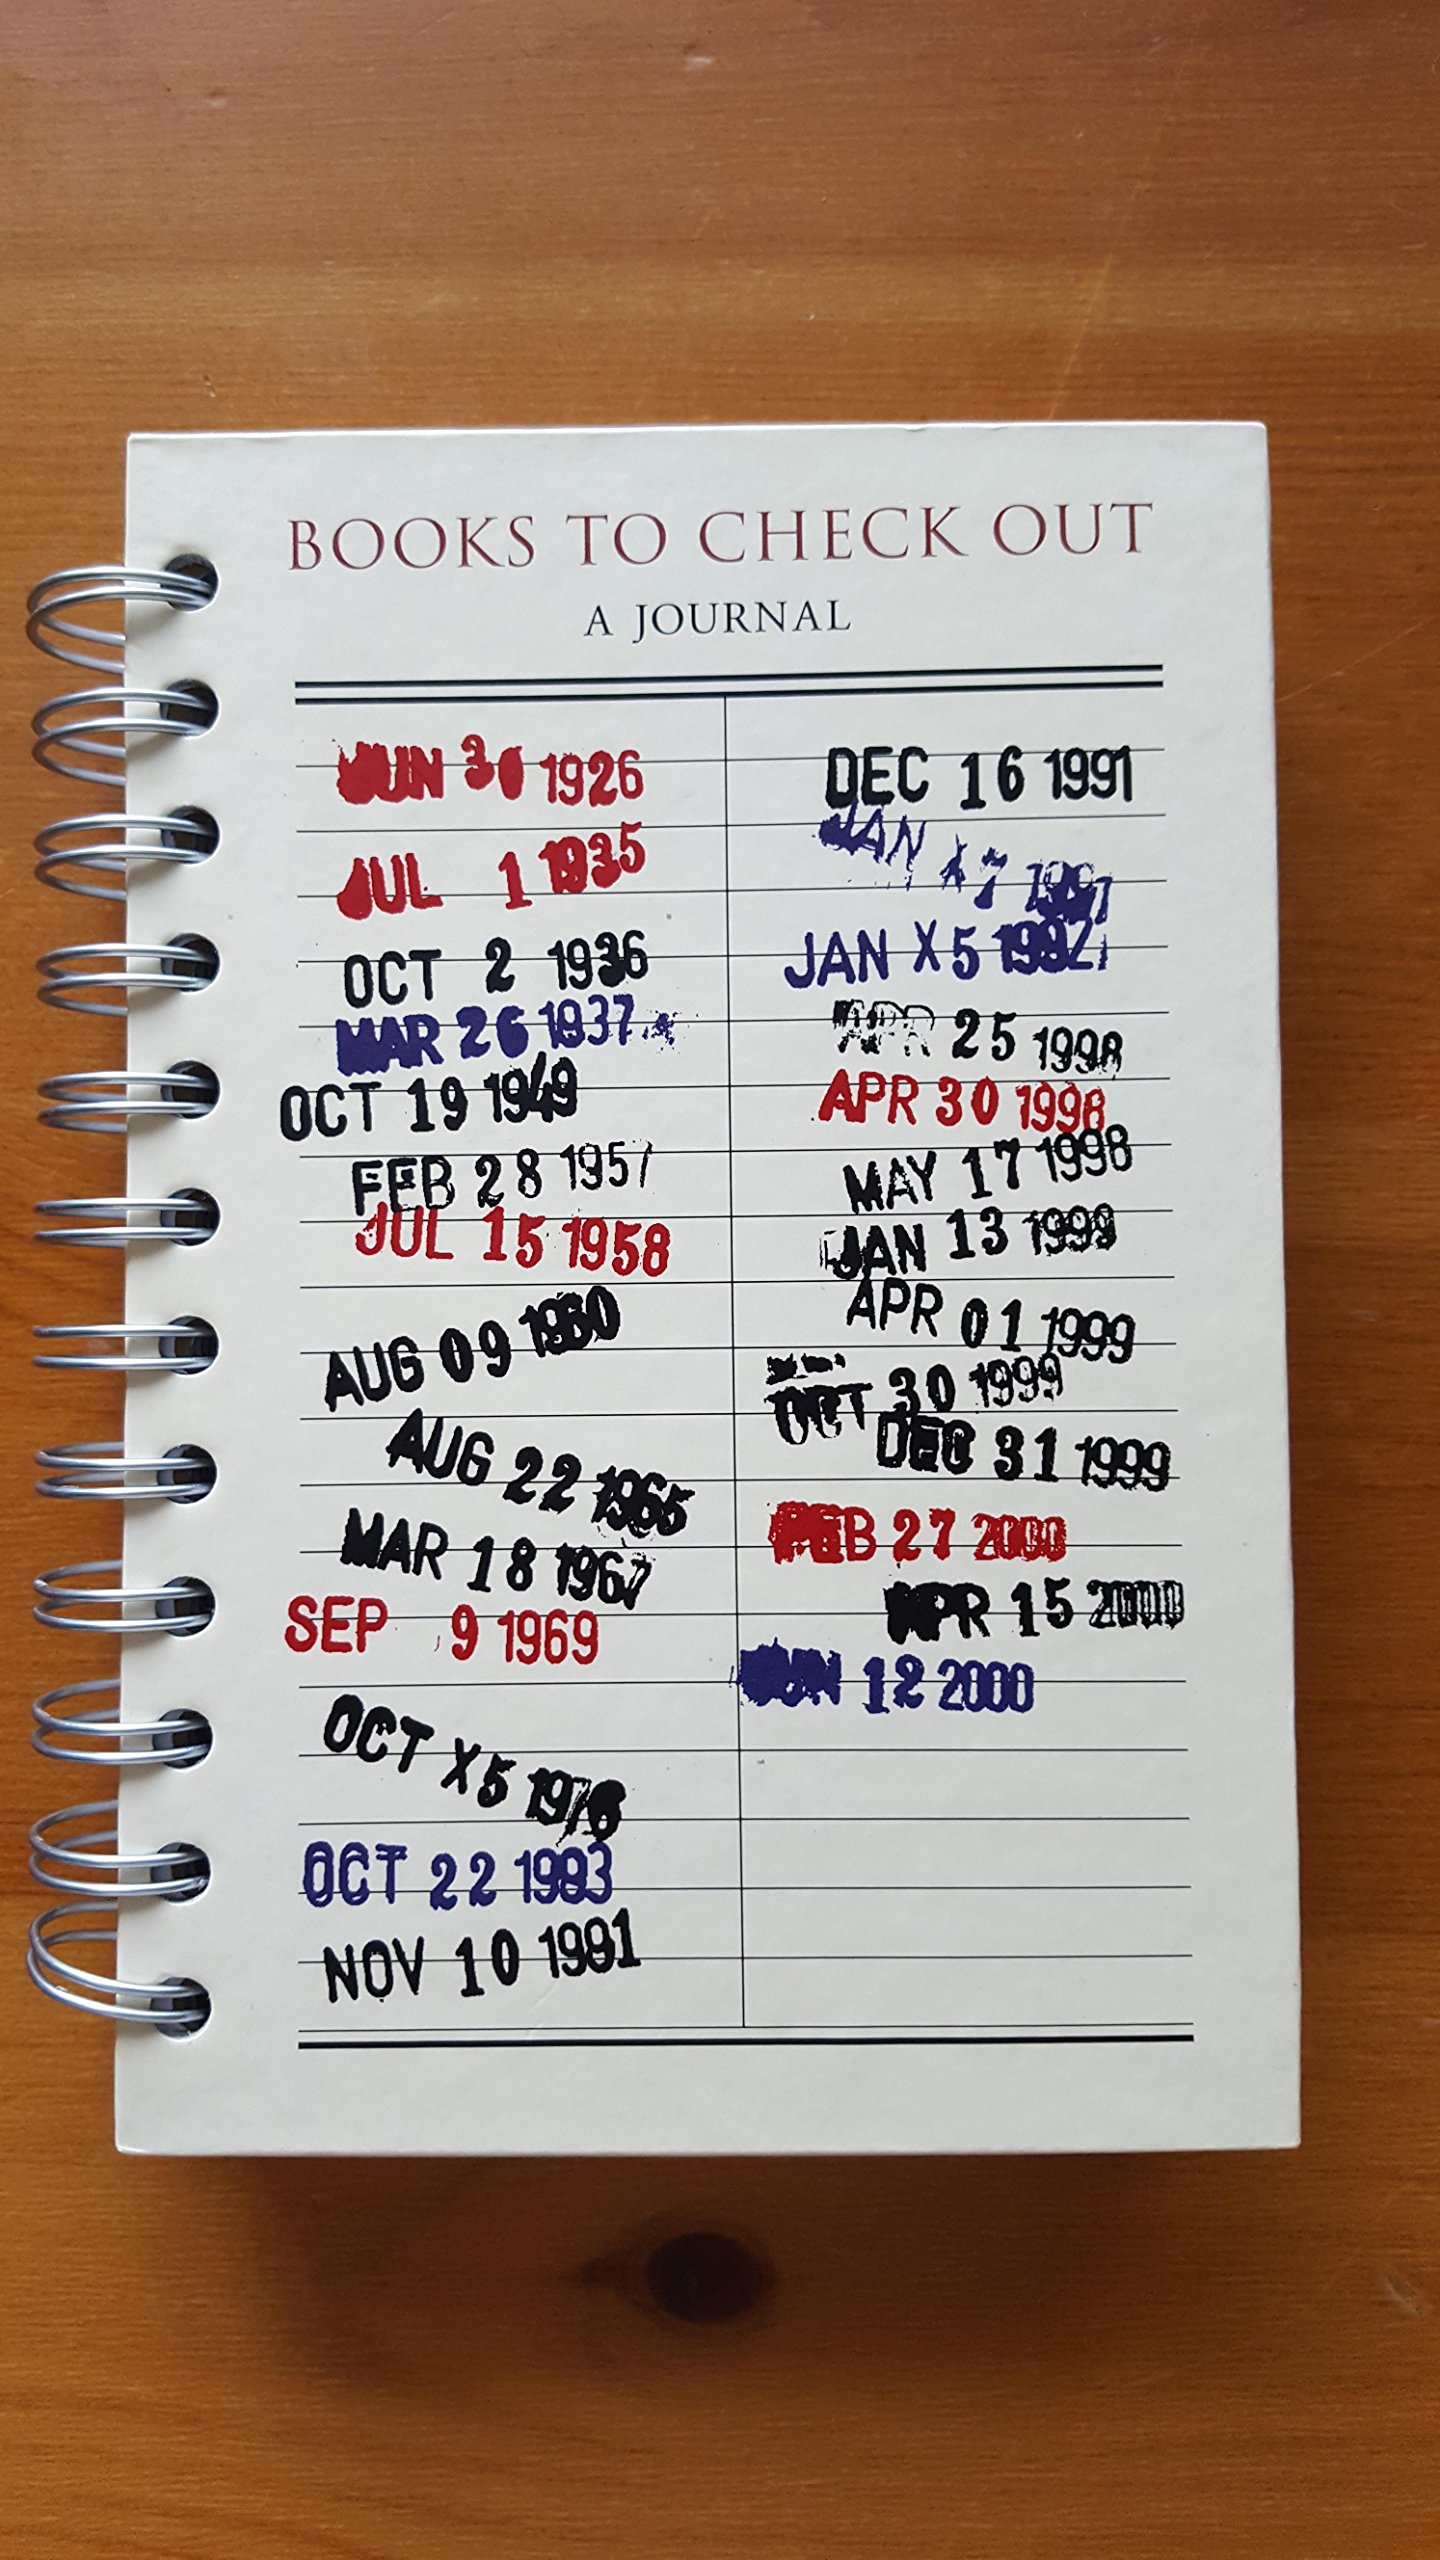 BOOKS TO CHECK OUT
A JOURNAL
JUN 30 1926
JUL 1 1935
OCT 2 1936
MAR 26 1937
OCT 19 1949
FEB 28 1957
JUL 15 1958
AUG 09 1960
AUG 22 1965
MAR 18 1967
SEP 9 1969
OCT X5 1976
OCT 22 1983
NOV 10 1991
DEC 16 1991
JAN 17
JAN X5 1992
APR 25 1998
APR 30 1998
MAY 17 1998
JAN 13 1999
APR 01 1999
OCT 30 1999
DEC 31 1999
FEB 27 2000
APR 15 2000
JUN 12 2000